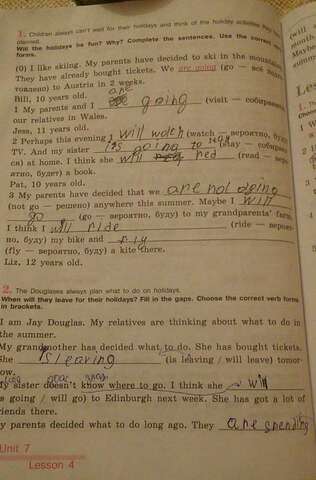 1. Children always can't wait for their holidays and think of the holiday activities they
planned.
Will the holidays be fun? Why? Complete the sentences. Use the correct
forms.
(0) I like skiing. My parents have decided to ski in the mountains.
They have already bought tickets. We are going (go — всё
) to Austria in 2 weeks.
Bill, 10 years old.
are
1 My parents and I going (visit — собираем
our relatives in Wales.
Jess, 11 years old.
2 Perhaps this evening I will watch (watch — вероятно, буду)
TV. And my sister is going to (stay — собирает
ся) at home. I think she will red (read — веро
ятно, будет) a book.
Pat, 10 years old.
3 My parents have decided that we are not going
(not go — решено) anywhere this summer. Maybe I will
go (go — вероятно, буду) to my grandparents' farm.
I think I will ride (ride — вероят
но, буду) my bike and fly
(fly — вероятно, буду) a kite there.
Liz, 12 years old.
2. The Douglases always plan what to do on holidays.
When will they leave for their holidays? Fill in the gaps. Choose the correct verb forms
in brackets.
I am Jay Douglas. My relatives are thinking about what to do in
the summer.
My grandmother has decided what to do. She has bought tickets.
She is leaving (is leaving / will leave) tomor-
row.
My sister doesn't know where to go. I think she will
(is going / will go) to Edinburgh next week. She has got a lot of
friends there.
My parents decided what to do long ago. They are spending
Unit 7
Lesson 4